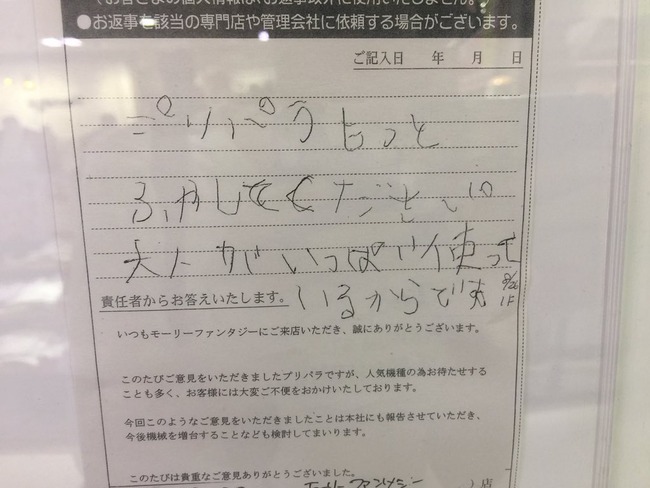 ●お返事を該当の専門店や管理会社に依頼する場合がございます。
ご記入日 年 月 日
プリパラもっと
ふやしてください
大人がいっぱい使って
いるからです
8/26
1F
責任者からお答えいたします。
いつもモーリーファンタジーにご来店いただき、誠にありがとうございます。
このたびご意見をいただきましたプリパラですが、人気機種の為お待たせする
ことも多く、お客様には大変ご不便をおかけいたしております。
今回このようなご意見をいただきましたことは本社にも報告させていただき、
今後機械を増台することなども検討してまいります。
このたびは貴重なご意見ありがとうございました。
ファンタジー 店